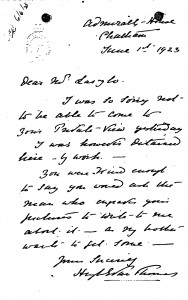 Admiralty House
Chatham
June 1st 1923
Dear Mr Laszlo
I was so sorry not
to be able to come to
your Private View yesterday
I was however detained
here by work.
You were kind enough
to say you would ask the
man who
to write to me
about it — as my brother
wants to get some —
Yours Sincerely